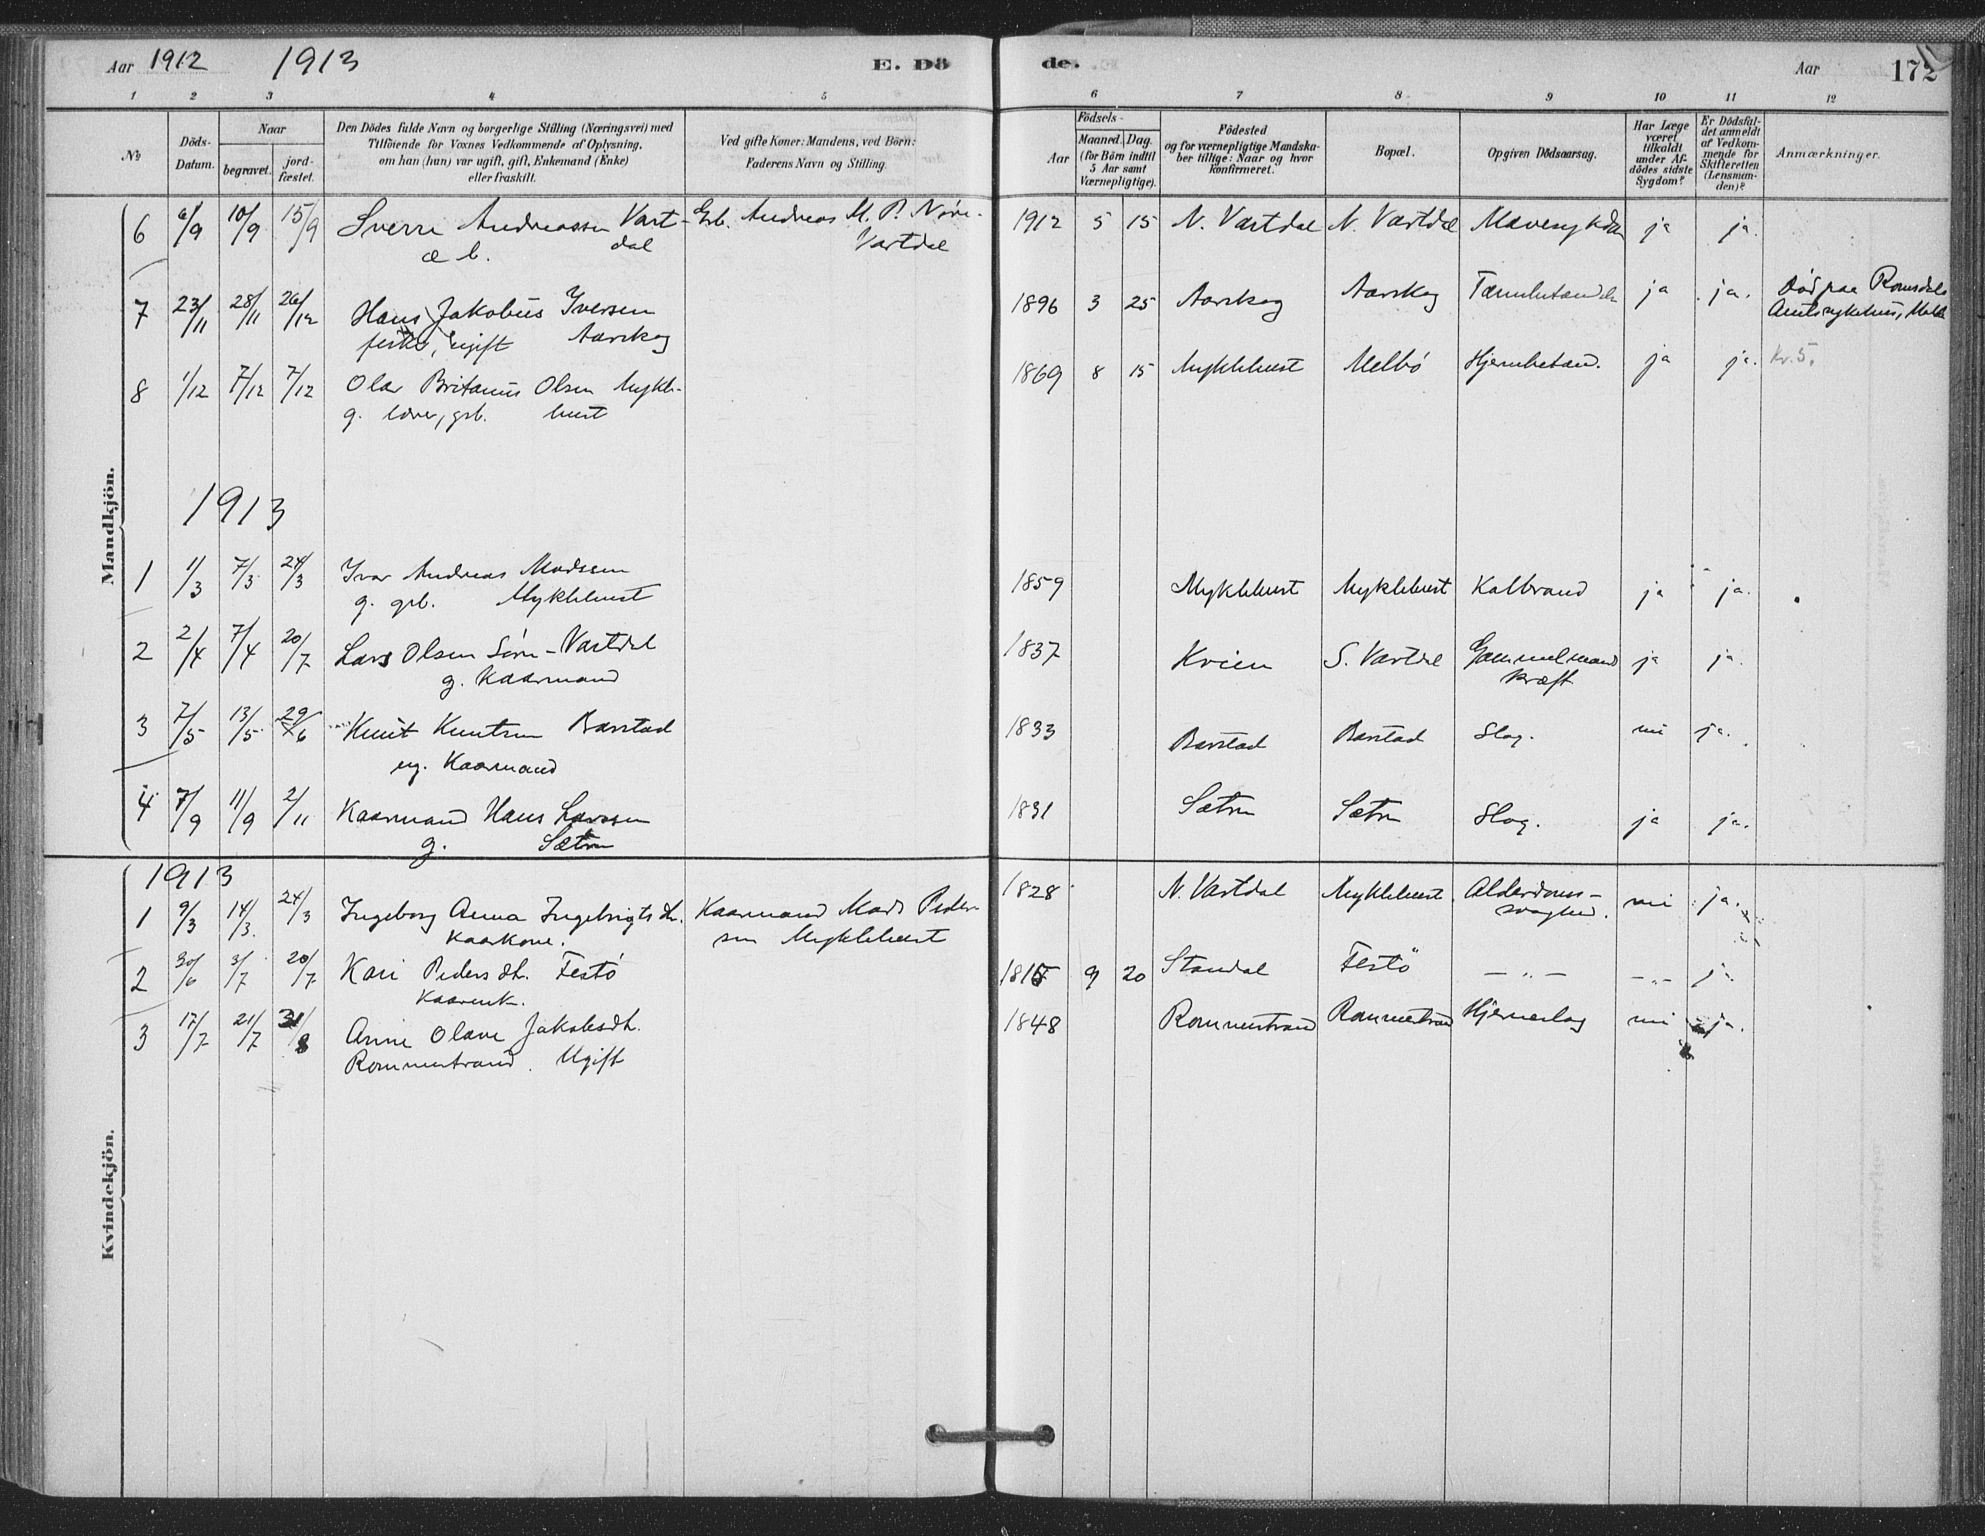 Aar 1912 1913 E. Dö de. Aar 172
1 2 3 4 5 6 7 8 9 10 11 12
№
Döds-Datum.
Naar
begravet.
jord-fæstet.
Den Dödes fulde Navn og borgerlige Stilling (Næringsvei) med
Tilföiende for Voxnes Vedkommende af Oplysning,
om han (hun) var ugift, gift, Enkemand (Enke)
eller fraskilt.
Ved gifte Koner: Mandens, ved Börn:
Faderens Navn og Stilling.
Födsels-
Aar
Maaned. Dag.
(for Börn indtil
5 Aar samt
Værnepligtige).
Födested
og for værnepligtige Mandska-
ber tillige: Naar og hvor
konfirmeret.
Bopæl.
Opgiven Dödsaarsag.
Har Læge
været
tilkaldt
under Af-
dödes sidste
Sygdom?
Er Dödsfal-
det anmeldt
af Vedkom-
mende for
Skifteretten
(Lensman-
den)?
Anmærkninger.
Mandkjön.
6 6/9 10/9 15/9 Sverre Andreassen Vart- Grb. Andreas M. P. Nöre- 1912 5 15 N. Vartdal N. Vartdal Mavesykdom ja ja.
dal Vartdal
7 23/11 28/11 26/12 Hans Jakobus Iversen 1896 3 25 Aarskog Aarskog ja ja. Död paa Romsdals
fisker, ugift Aarskog Amtssykehus, Molde
8 1/12 7/12 7/12 Olav Britanus Olsen Mykle- 1869 8 15 Myklebust Melbö Hjernebetænd. ja ja. Kr. 5.
g. lærer, grb. bust
1913
1 1/3 7/3 24/3 Ivar Andreas Madssen 1859 Myklebust Myklebust Kalbrand ja ja.
g. grb. Myklebust
2 2/4 7/4 20/7 Lars Olsen Söre-Vartdal 1837 Kvien S. Vartdal Gammelmand ja ja.
g. Kaarmand kræft
3 7/5 13/5 29/6 Knut Knutsen Barstad 1833 Barstad Barstad Slag. nei ja.
ug. Kaarmand
4 7/9 11/9 2/11 Kaarmand Hans Larssen 1831 Sætre Sætre Slag. ja ja.
g. Sætre
Kvindekjön.
1913
1 9/3 14/3 24/3 Ingeborg Anna Ingebrigtsdt. Kaarmand Mads Peder- 1828 N. Vartdal Myklebust Alderdoms- nei ja.
Kaarkone. sen Myklebust svaghed.
2 30/6 3/7 20/7 Kari Pedersdt. Festö 9 20 Standal Festö — „ — — „ — ja.
Kaarenk.
3 17/7 21/7 31/8 Anne Olave Jakobsdt. 1848 Rommestrand Rommestrand Hjerneslag nei ja.
Rommestrand. Ugift